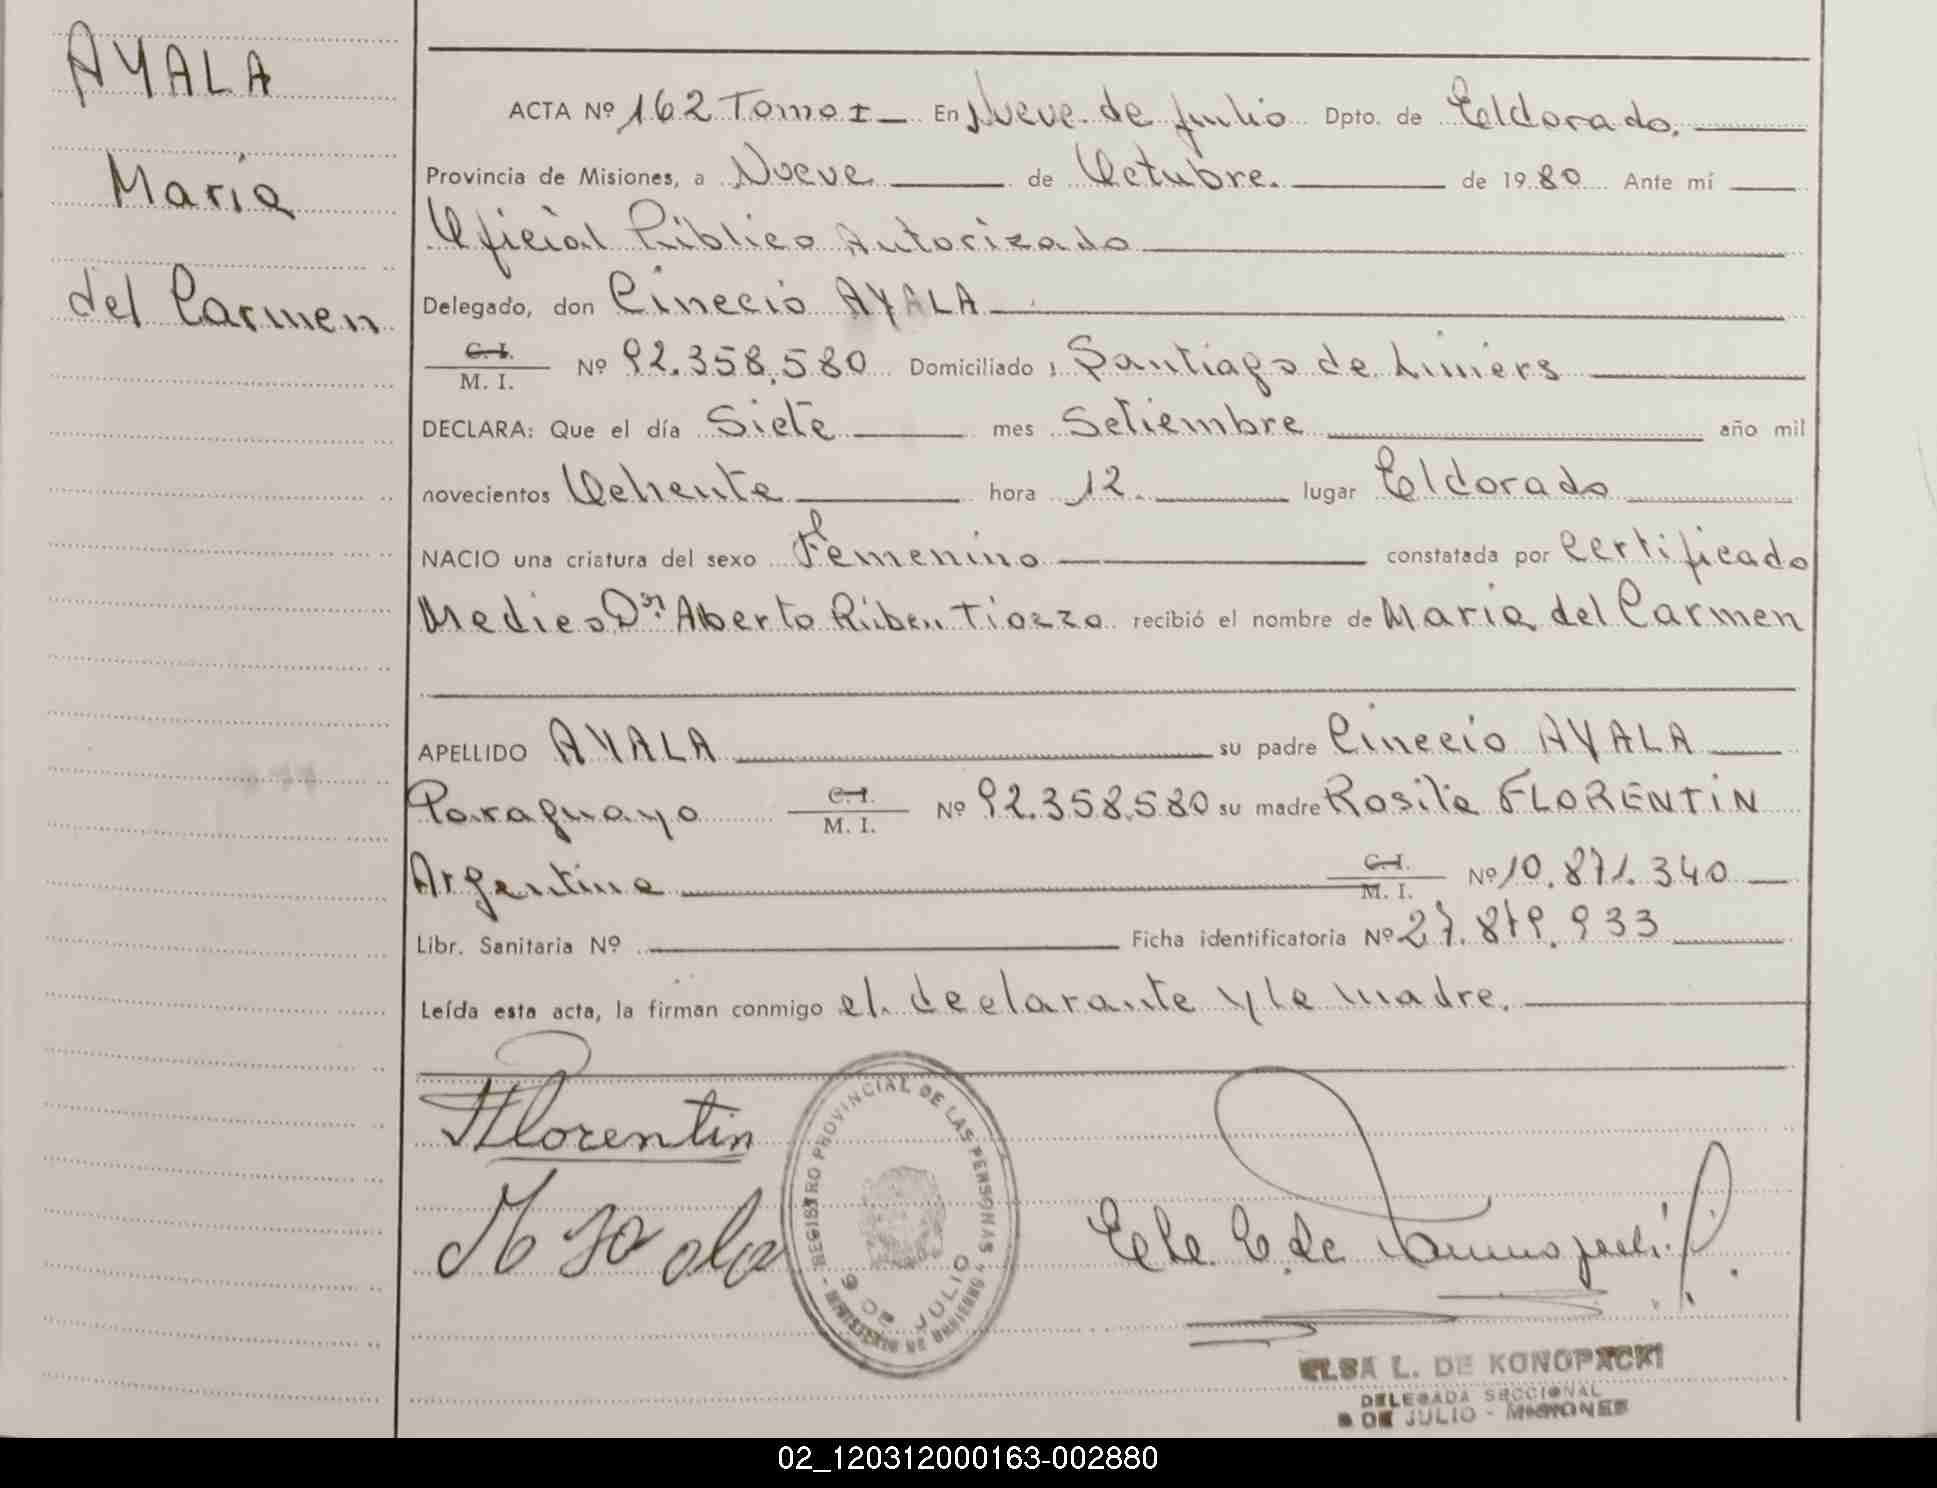 AYALA
Maria
del Carmen
ACTA Nº 162 Tomo I En Nueve de Julio Dpto. de Eldorado.
Provincia de Misiones, a Nueve de Octubre. de 1980 Ante mí
Oficial Público Autorizado
Delegado, don Cinecio AYALA
C. I.
M. I. Nº 92.358.580 Domiciliado Santiago de Liniers
DECLARA: Que el día Siete mes Setiembre año mil
novecientos Ochenta hora 12. lugar Eldorado
NACIO una criatura del sexo Femenino constatada por Certificado
Medico Dr. Alberto Rúben Tiozzo recibió el nombre de Maria del Carmen
APELLIDO AYALA su padre Cinecio AYALA
Paraguayo C. I. M. I. Nº 92.358.580 su madre Rosita FLORENTIN
Argentina C. I. M. I. Nº 10.871.340
Libr. Sanitaria Nº Ficha identificatoria Nº 27.879.933
Leída esta acta, la firman conmigo el declarante y la madre.
Florentin
REGISTRO PROVINCIAL DE LAS PERSONAS
MINISTERIO DE GOBIERNO
9 DE JULIO
ELSA L. DE KONOPACKI
DELEGADA SECCIONAL
9 DE JULIO - MISIONES
02_120312000163-002880